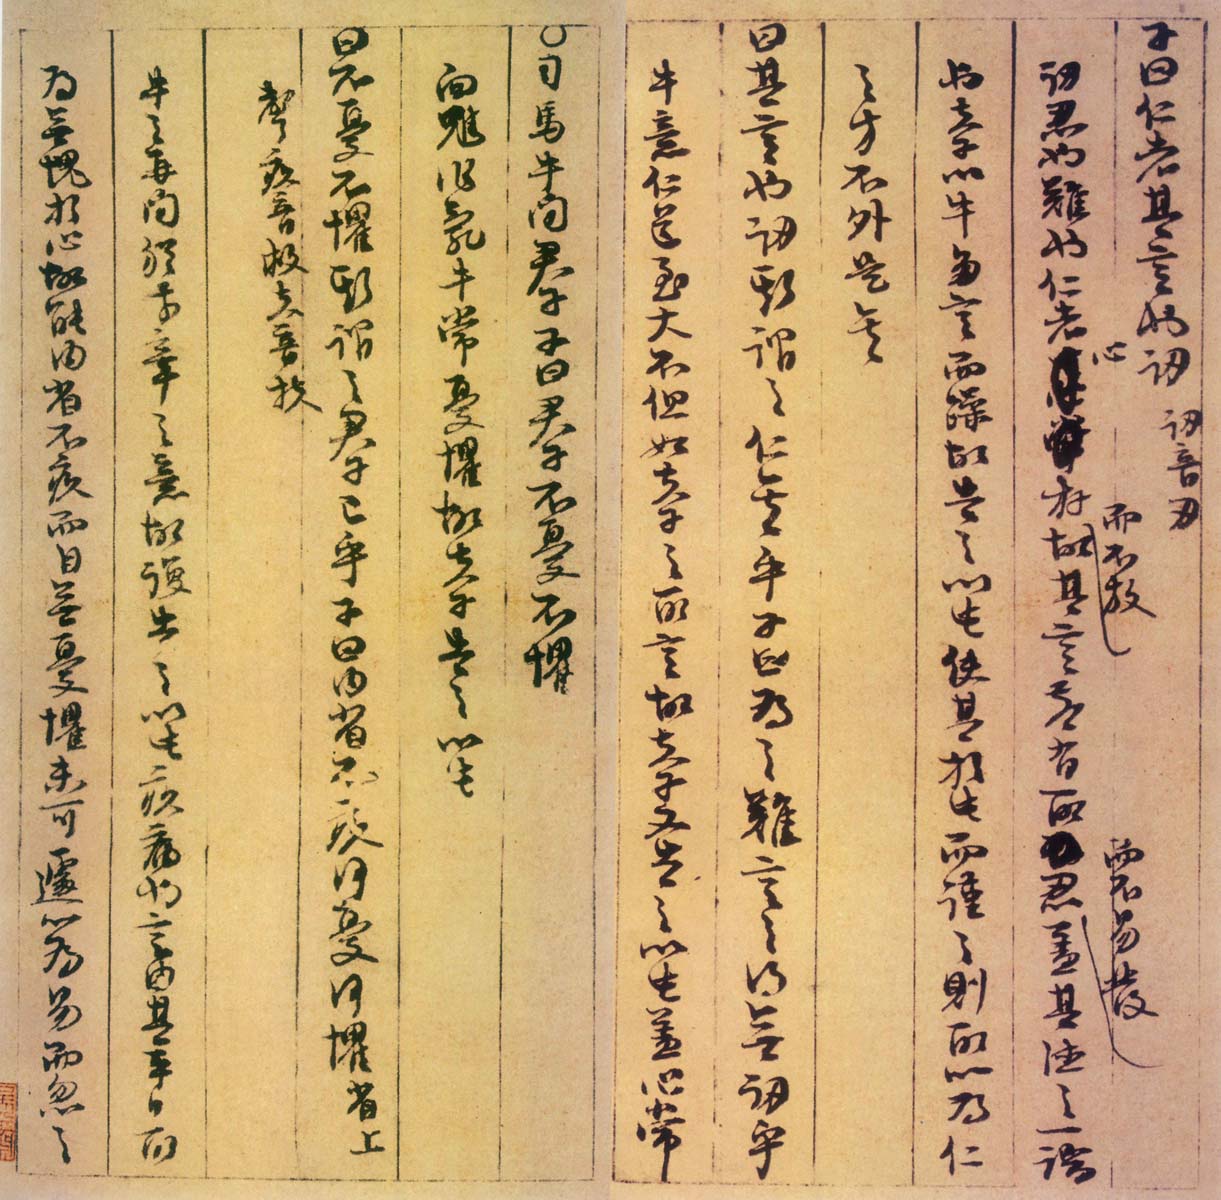 子曰仁者其言也訒 訒音刃
訒忍也難也仁者心存而不放故其言若有所忍而不易發蓋其德之一端
也夫子以牛多言而躁故告之以此使其於此而謹之則所以為仁
之方不外是矣
曰其言也訒斯謂之仁矣乎子曰為之難言之得無訒乎
牛意仁道至大不但如夫子之所言故夫子又告之以此蓋心常
○司馬牛問君子子曰君子不憂不懼
向魋作亂牛常憂懼故夫子告之以此
曰不憂不懼斯謂之君子已乎子曰內省不疚何憂何懼 省上
聲疚音救夫音扶
牛之再問猶前章之意故復告之以此疚病也言由其平日所
為無愧於心故能內省不疚而自無憂懼未可遽以為易而忽之